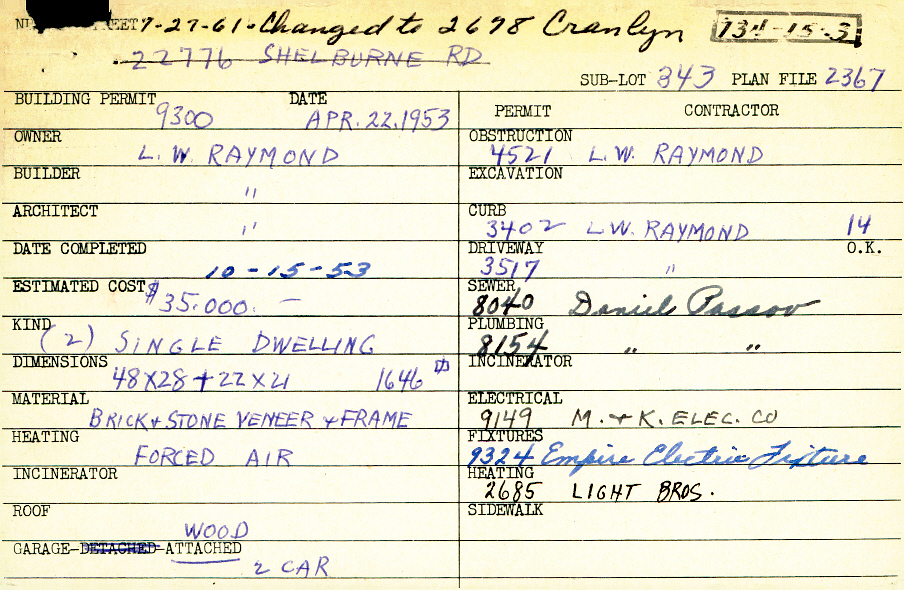 7-27-61 · Changed to 2698 Cranlyn 734-15-3
22776 SHELBURNE RD
SUB-LOT 343 PLAN FILE 2367
BUILDING PERMIT DATE
9300 APR. 22, 1953
PERMIT CONTRACTOR
OWNER
L. W. RAYMOND
OBSTRUCTION
4521 L. W. RAYMOND
BUILDER
"
EXCAVATION
ARCHITECT
"
CURB
3402 L.W. RAYMOND 14
DATE COMPLETED
10-15-53
DRIVEWAY O.K.
3517 "
ESTIMATED COST
$35.000. —
SEWER
8040 Daniel Passov
KIND
(2) SINGLE DWELLING
PLUMBING
8154 " "
DIMENSIONS
48X28+22X21 1646
INCINERATOR
MATERIAL
BRICK + STONE VENEER + FRAME
ELECTRICAL
9149 M. + K. ELEC. CO
HEATING
FORCED AIR
FIXTURES
9324 Empire Electric Fixture
INCINERATOR
HEATING
2685 LIGHT BROS.
ROOF
WOOD
SIDEWALK
GARAGE-DETACHED-ATTACHED
2 CAR